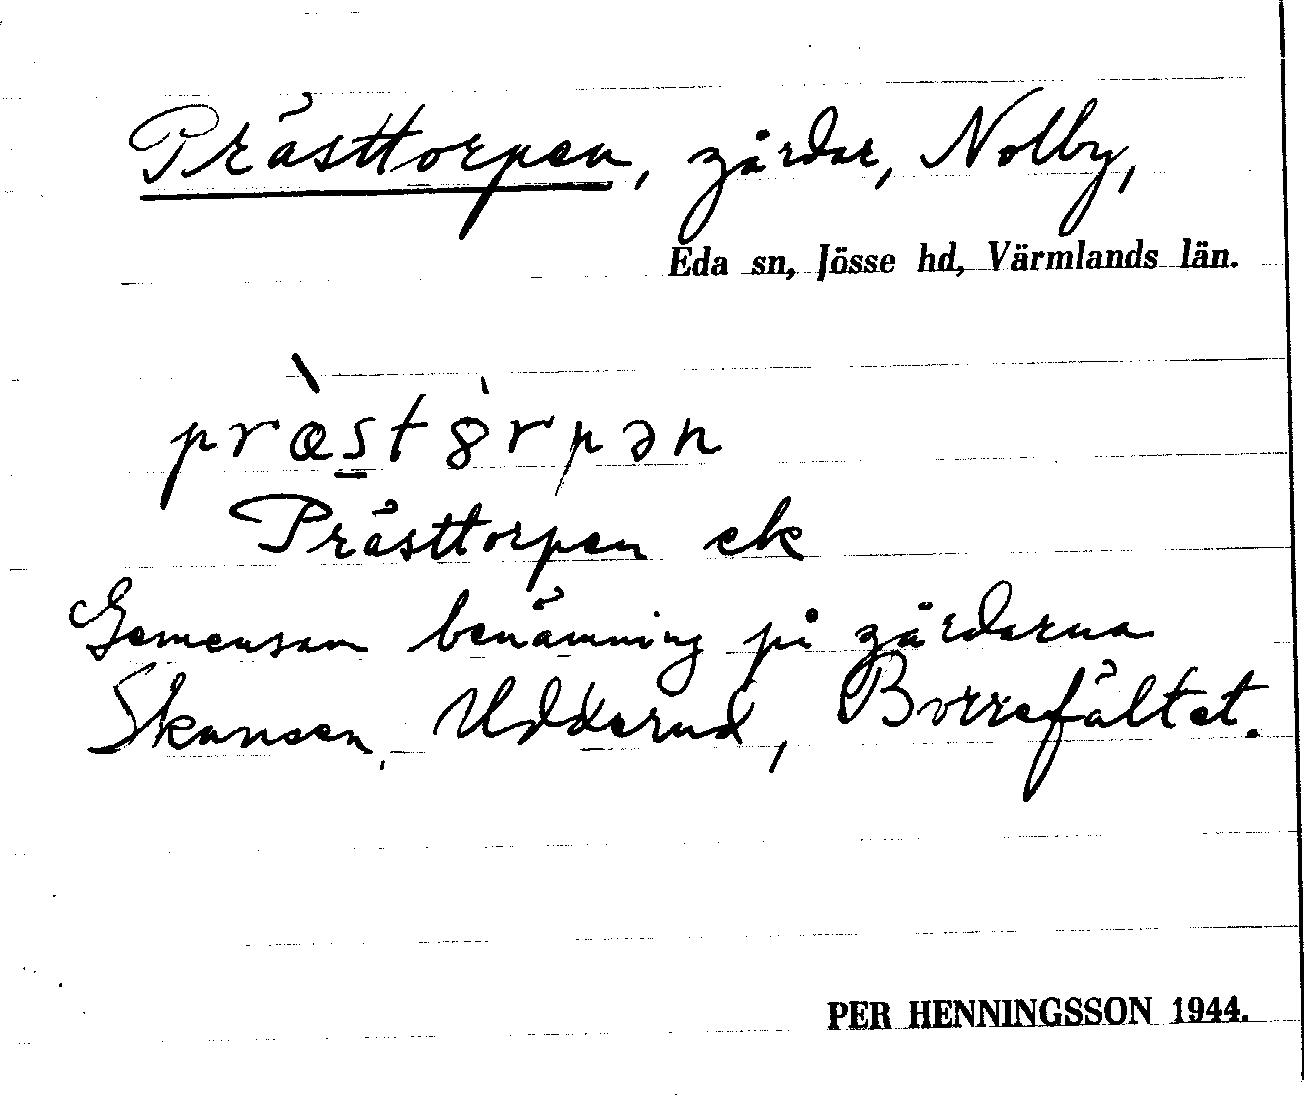 Prästtorpen, gårdar, Nolby,
Eda sn, Jösse hd, Värmlands län.
præ̀stȣ̀rpən
Prästtorpen ek
Gemensam benämning på gårdarna
Skansen, Udderud, Borrefältet.
PER HENNINGSSON 1944.